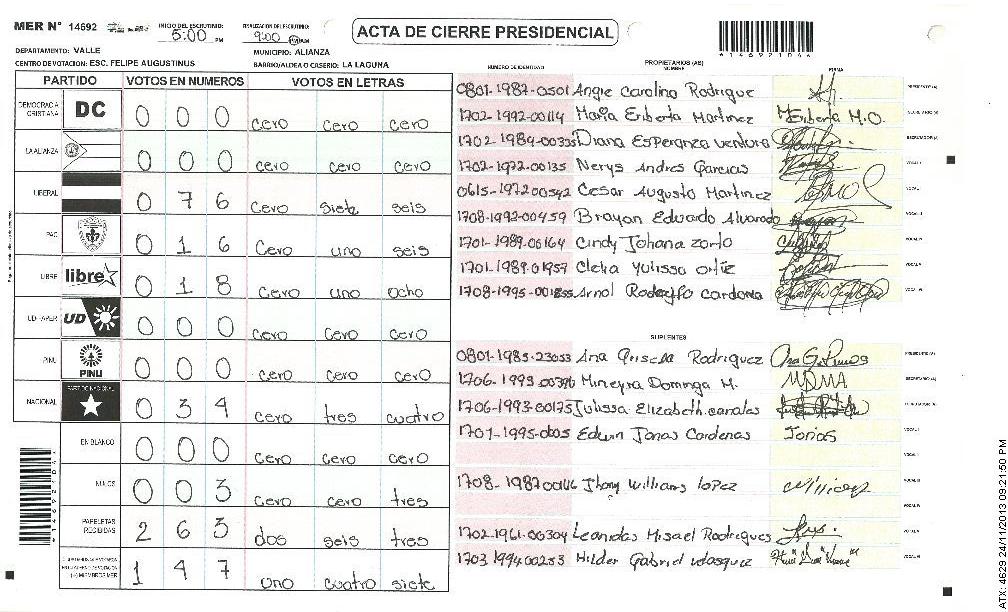 MER N° 14692 INICIO DEL ESCRUTINIO: 5:00 PM FINALIZACION DEL ESCRUTINIO: 9:00 PM ACTA DE CIERRE PRESIDENCIAL
DEPARTAMENTO: VALLE MUNICIPIO: ALIANZA
CENTRO DE VOTACION: ESC. FELIPE AUGUSTINUS BARRIO/ALDEA O CASERIO: LA LAGUNA
PARTIDO VOTOS EN NUMEROS VOTOS EN LETRAS
DEMOCRACIA CRISTIANA DC 0 0 0 cero cero cero
LA ALIANZA 0 0 0 cero cero cero
LIBERAL 0 7 6 Cero siete seis
PAC 0 1 6 Cero uno seis
LIBRE libre 0 1 8 Cero uno ocho
UD-FAPER UD 0 0 0 cero cero cero
PINU PINU 0 0 0 cero cero cero
NACIONAL PARTIDO NACIONAL 0 3 4 cero tres cuatro
EN BLANCO 0 0 0 cero cero cero
NULOS 0 0 3 Cero cero tres
PAPELETAS RECIBIDAS 2 6 3 dos seis tres
1 4 7 uno cuatro siete
NUMERO DE IDENTIDAD PROPIETARIOS (AS) NOMBRE FIRMA
0801-1987-0501 Angie Carolina Rodrigue PRESIDENTE (A)
1702-1992-00114 Maria Eriberta Martinez Eriberta M.O. SECRETARIO (A)
1702-1989-00335 Diana Esperanza ventura ESCRUTADOR (A)
1702-1972-00135 Nerys Andres Garcias VOCAL I
0615-197200542 Cesar Augusto Martinez VOCAL
1708-1992-00459 Brayan Eduardo Alvarado VOCAL
1701-1989-00164 Cindy Johana zorto VOCAL
1701-1989-01957 Clelia Yulissa Ortiz VOCAL
1708-1995-001855 Arnol Rodolfo cardona VOCAL
SUPLENTES
0801-1985-23053 Ana Grisela Rodriguez PRESIDENTE (A)
1706-1993-00396 Mineyra Dominga M. MDMA SECRETARIO (A)
1706-1993-00175 Julissa Elizabeth canales
1701-1995-0005 Edwin Jonas Cardenas Jonas VOCAL
1708-1987 00146 Jhony Williams lopez VOCAL
1702-1961-00304 Leonidas Misael Rodrigues VOCAL
1703 1994 00253 Hilder Gabriel velasquez VOCAL
ATX: 4629 24/11/2013 09:21:50 PM